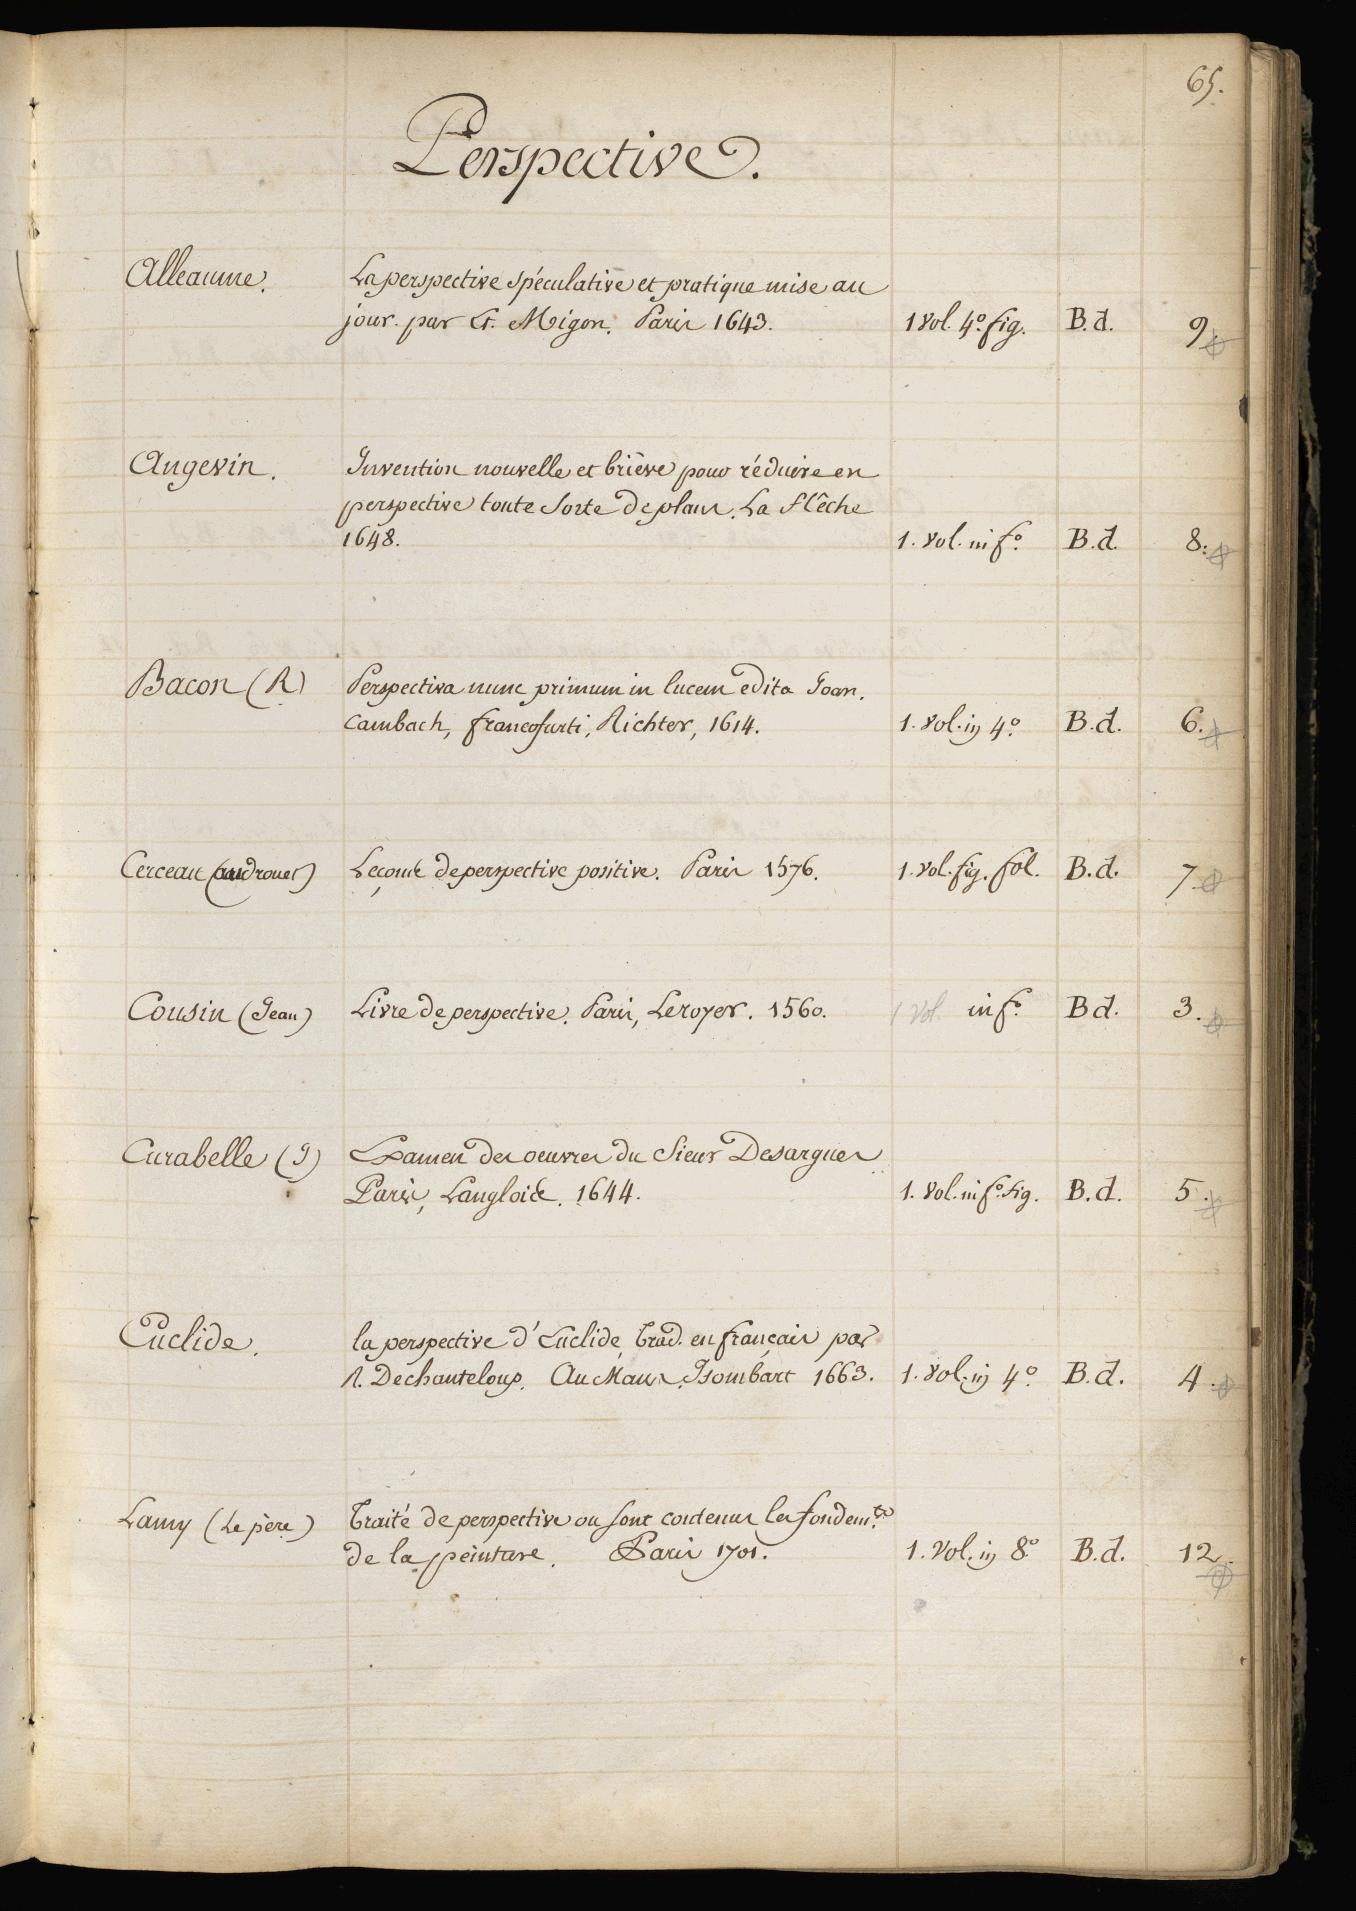 65.
Perspective.
Alleaume. La perspective spéculative et pratique mise au
jour. par Et. Migon. Paris 1643. 1 vol. 4º. fig. B.d. 9.
Angevin. Invention nouvelle et briève pour réduire en
perspective toute sorte de plans. La flêche
1648. 1. vol. in fº. B.d. 8.
Bacon (R) Perspectiva nunc primum in lucem edita Joan.
Cambach, francofurti, Richter, 1614. 1. vol. in 4º. B.d. 6.
Cerceau (androuet) Leçons de perspective positive. Paris 1576. 1. vol. fig. fol. B.d. 7
Cousin (Jean) Livre de perspective. Paris, Leroyer. 1560. 1 vol. in fº. B d. 3.
Curabelle (J) Examen des oeuvres du Sieur Desargues
Paris, Langlois. 1644. 1. vol. in fº. fig. B.d. 5.
Euclide. la perspective d'Euclide, trad. en français par
R. Dechanteloup. Au Mans. Isombart 1663. 1. vol. in 4º. B.d. 4.
Lamy (Le père) Traité de perspective ou sont contenus les fondemts.
de la peinture. Paris 1701. 1. vol. in 8º. B.d. 12.